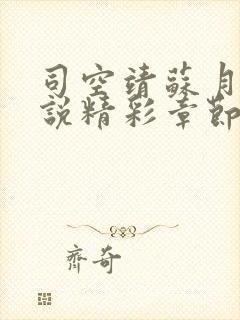 司空靖蘇月
說精彩章節
齊奇